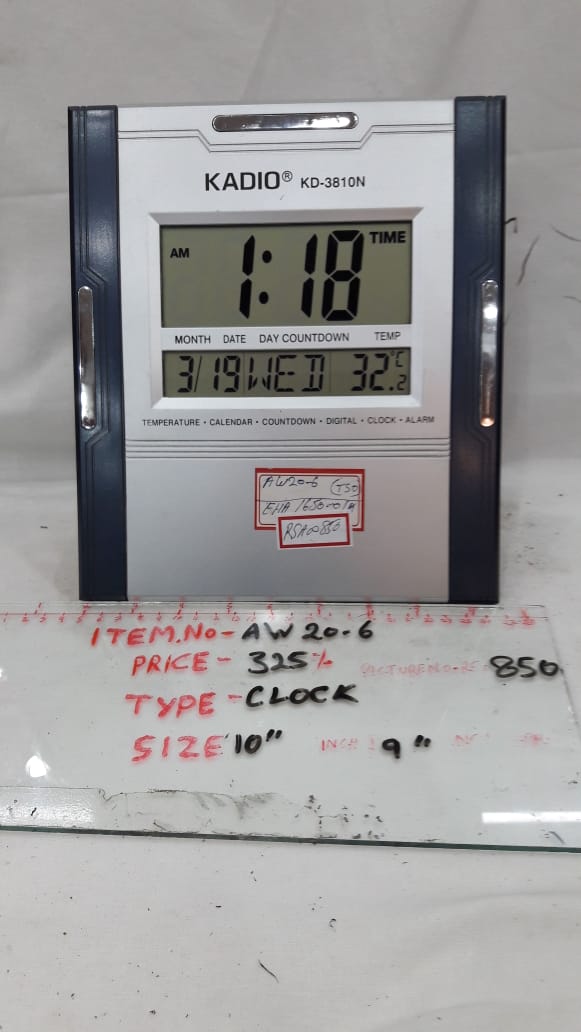 KADIO® KD-3810N
AM 1:18 TIME
MONTH DATE DAY COUNTDOWN TEMP
3/19 WED 32.2°C
TEMPERATURE • CALENDAR • COUNTDOWN • DIGITAL • CLOCK • ALARM
AW20-6
ITEM.No- AW 20-6
PRICE - 325% 850
TYPE - CLOCK
SIZE 10" INCH 9"